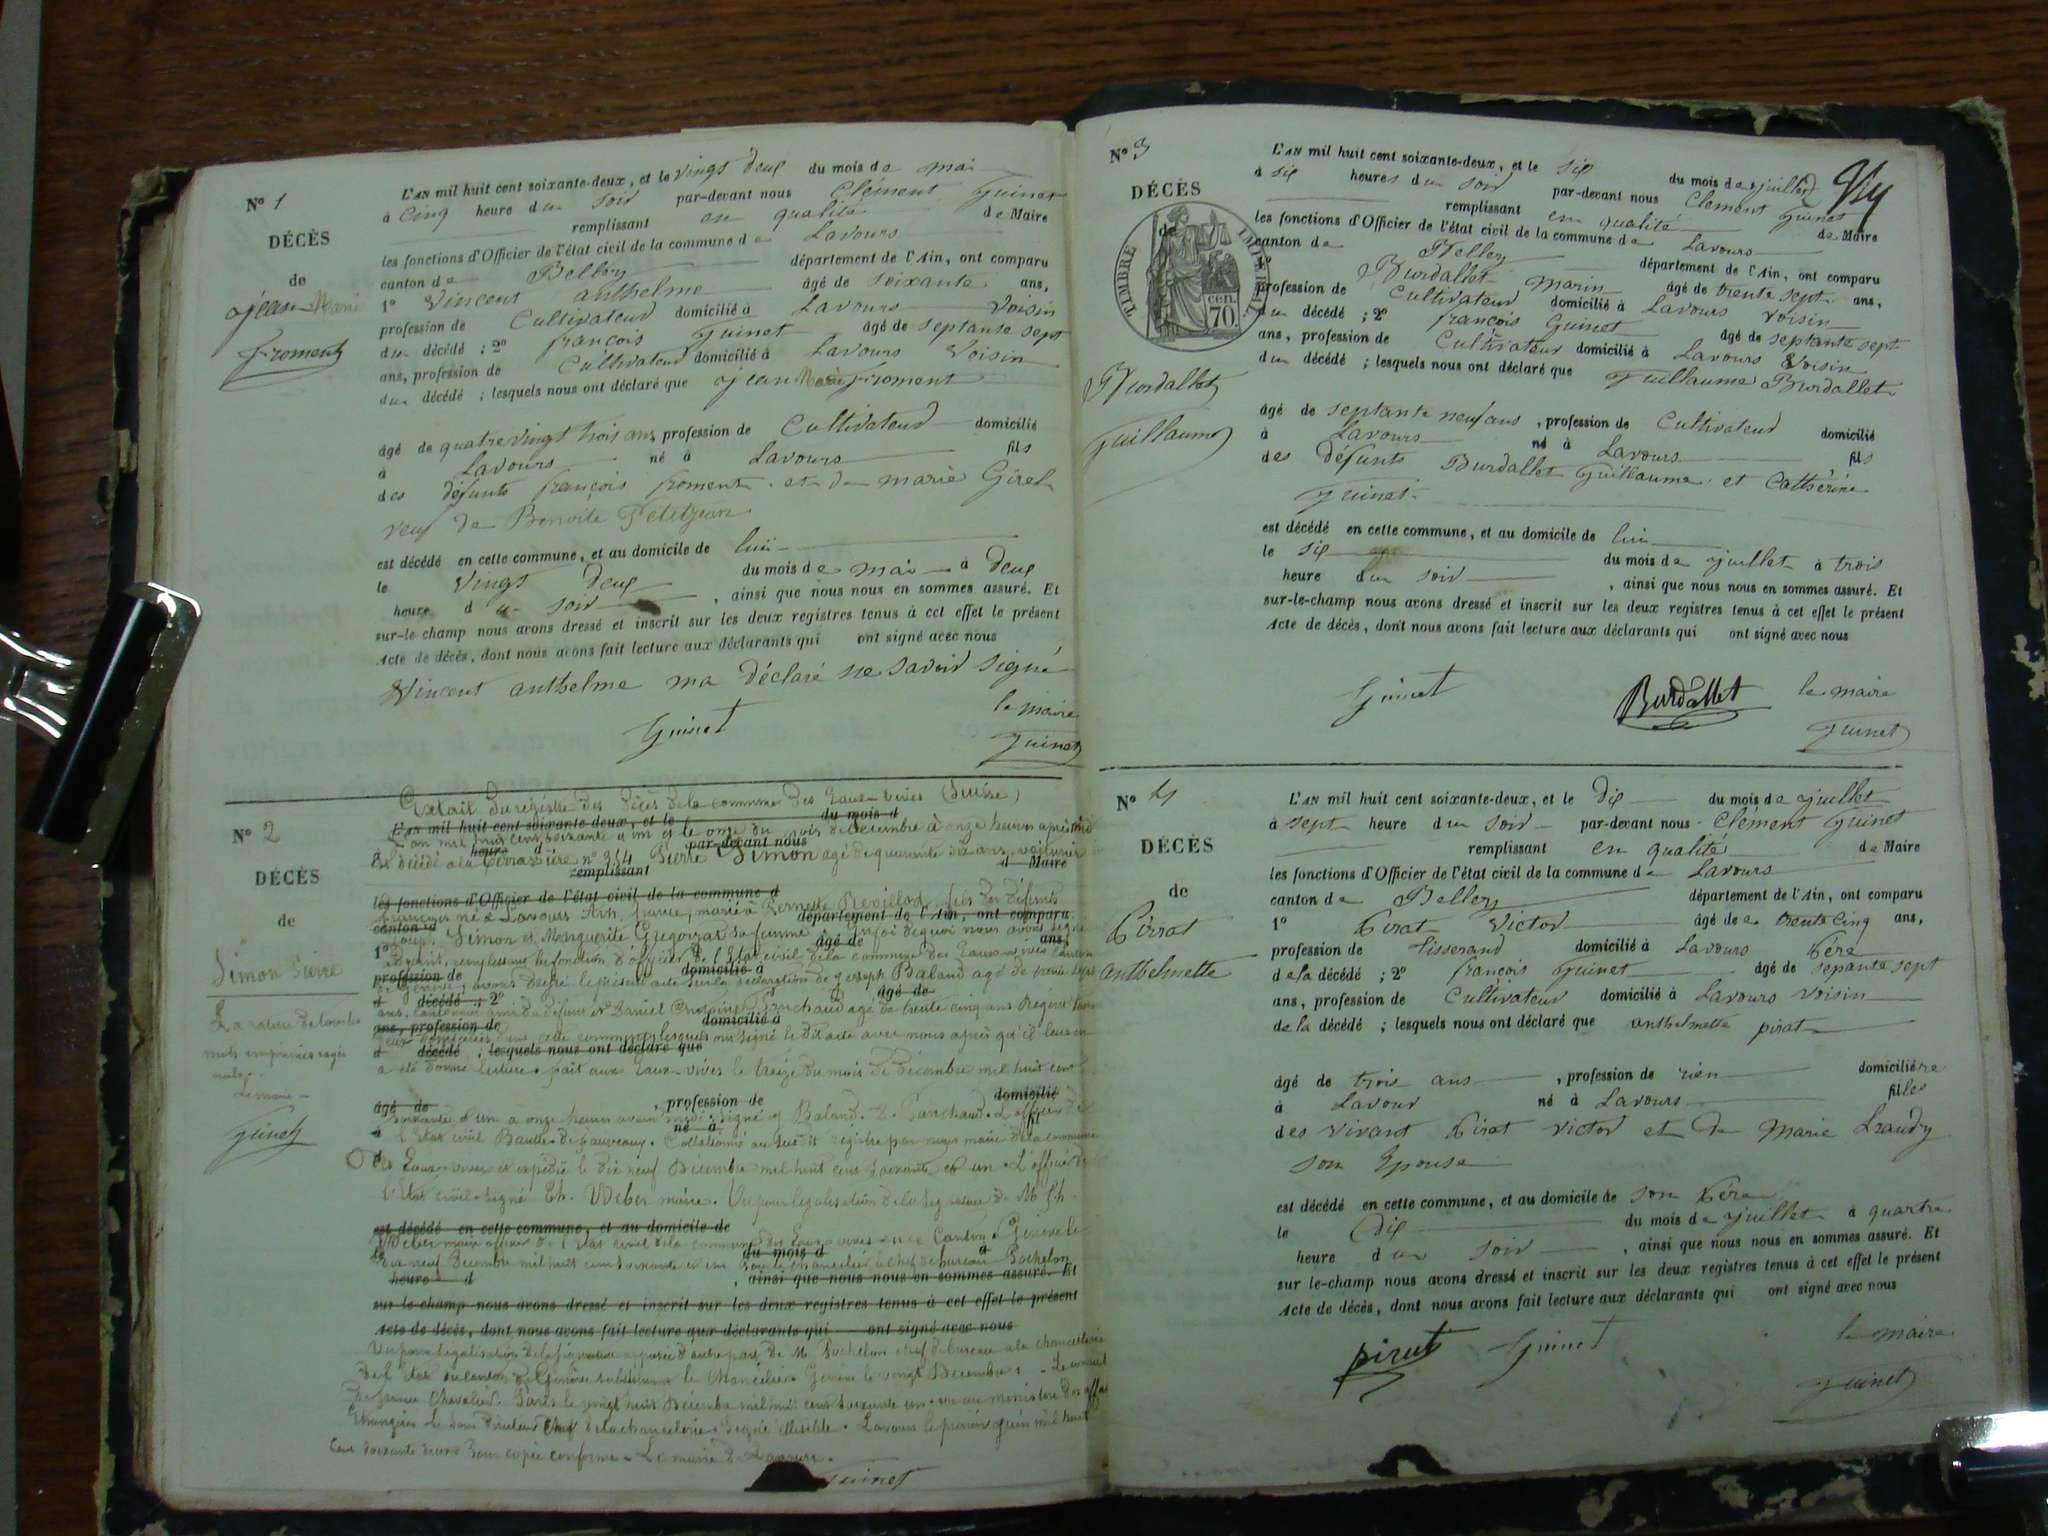 Nº 1
DÉCÈS
de
jean Marie
froment
L'AN mil huit cent soixante-deux, et le vingt deux du mois de mai
à cinq heure du soir par-devant nous Clément Guinet
remplissant en qualité de Maire
les fonctions d'Officier de l'état civil de la commune de Lavours
canton de Belley département de l'Ain, ont comparu
1º Vincent anthelme âgé de soixante ans,
profession de Cultivateur domicilié à Lavours Voisin
du décédé ; 2º françois Guinet âgé de septante sept
ans, profession de Cultivateur domicilié à Lavours Voisin
du décédé ; lesquels nous ont déclaré que jean Marie froment
âgé de quatre vingt trois ans, profession de Cultivateur domicilié
à Lavours né à Lavours fils
des défunts françois froment et de marie Girel
veuf de Benoite Petitjean
est décédé en cette commune, et au domicile de lui
le vingt deux du mois de mai à deux
heure du soir , ainsi que nous nous en sommes assuré. Et
sur-le champ nous avons dressé et inscrit sur les deux registres tenus à cet effet le présent
Acte de décès, dont nous avons fait lecture aux déclarants qui ont signé avec nous
Vincent anthelme ma déclaré ne savoir signé
le maire
Guinet
Guinet
Nº 2
DÉCÈS
de
Simon Pierre
mots imprimés rayés
Le maire
Guinet
Extrait du registre des décès de la commune des Eaux-vives (Suisse)
L'AN mil huit cent soixante-deux, et le du mois d
L'an mil huit cent soixante un et le onze du mois de décembre à onze heures après midi
heure d par-devant nous
Est décédé à la Terrassière nº 354 Pierre Simon agé de quarante dix ans, voiturier
remplissant d Maire
les fonctions d'Officier de l'état civil de la commune d
français né à Lavours Ain, france, marié à Pernette Revillod, fils des défunts
canton d département de l'Ain, ont comparu
joseph Simon et Marguerite sa femme. En foi de quoi nous avons signé
1º âgé de ans,
remplissant les fonction d'officier de l'Etat civil de la commune des Eaux-vives Canton
profession de domicilié à
de Genève, avons dressé le présent acte sur la déclaration de joseph Baland agé de trente sept
d décédé ; 2º âgé de
ans, ami du défunt et Daniel Antoine Panchaud agé de trente cinq ans Régent tous
ans, profession de domicilié à
deux domiciliés dans cette commune lesquels ont signé le dit acte avec nous après qu'il leur en
d décédé ; lesquels nous ont déclaré que
a été donné lecture. fait aux Eaux-vives le treize du mois de décembre mil huit cent
âgé de , profession de domicilié
soixante et un à onze heures avant midi. signé j Baland. D. Panchaud. L'officier de
à né à fil
l'Etat civil Collationné au susdit registre par nous maire de la commune
d
des Eaux-vives et expédié le dix neuf Décembre mil huit cent soixante et un. L'officier de
l'Etat civil signé Th. Weber maire. Vu pour legalisation de la signature de M Th.
est décédé en cette commune, et au domicile de
Weber maire officier de l'Etat civil de la commune des Eaux vives Canton Genève le
le du mois d à
dix neuf Décembre mil huit cent soixante et un Pour le chancelier le chef de bureau Pochelon
heure d , ainsi que nous nous en sommes assuré. Et
sur-le-champ nous avons dressé et inscrit sur les deux registres tenus à cet effet le présent
Acte de décès, dont nous avons fait lecture aux déclarants qui ont signé avec nous
Vu pour legalisation de la signature apposée d'autre part de M Pochelon chef de bureau à la chancellerie
de l'Etat du canton de Genève substituant le Chancelier Genève le vingt Décembre. Le consul
de france Chevalier. Paris le vingt huit Décembre mil huit cent soixante un. vu au ministère des affaires
Etrangères le sous Directeur Chef de la chancelerie signé illisible. Lavours le premier juin mil huit
Cent soixante deux Pour copie conforme. Le maire de Lavours.
Guinet
Nº 3
DÉCÈS
de
TIMBRE IMPÉRIAL
70 cen.
Burdallet
Guillaume
L'AN mil huit cent soixante-deux, et le six du mois de juillet
à six heures du soir par-devant nous Clement Guinet
remplissant en qualité de Maire
les fonctions d'Officier de l'état civil de la commune de Lavours
canton de Belley département de l'Ain, ont comparu
1º Burdallet Marin âgé de trente sept ans,
profession de Cultivateur domicilié à Lavours voisin
du décédé ; 2º françois Guinet âgé de septante sept
ans, profession de Cultivateur domicilié à Lavours Voisin
du décédé ; lesquels nous ont déclaré que Guillaume Burdallet
âgé de septante neuf ans , profession de Cultivateur domicilié
à Lavours né à Lavours fils
des défunts Burdallet Guillaume et Cathérine
Guinet
est décédé en cette commune, et au domicile de lui
le six du mois de juillet à trois
heure du soir , ainsi que nous nous en sommes assuré. Et
sur-le-champ nous avons dressé et inscrit sur les deux registres tenus à cet effet le présent
Acte de décès, dont nous avons fait lecture aux déclarants qui ont signé avec nous
Guinet Burdallet le maire
Guinet
Nº 4
DÉCÈS
de
Pirat
anthelmette
L'AN mil huit cent soixante-deux, et le dix du mois de juillet
à sept heure du soir par-devant nous Clement Guinet
remplissant en qualité de Maire
les fonctions d'Officier de l'état civil de la commune de Lavours
canton de Belley département de l'Ain, ont comparu
1º Pirat Victor âgé de trente cinq ans,
profession de tisserand domicilié à Lavours Père
de la décédé ; 2º françois Guinet âgé de sepante sept
ans, profession de Cultivateur domicilié à Lavours voisin
de la décédé ; lesquels nous ont déclaré que anthelmette pirat
âgé de trois ans , profession de rien domiciliére
à Lavour né à Lavours filles
des vivant Pirat victor et de Marie
son Epouse
est décédé en cette commune, et au domicile de son Père
le dix du mois de juillet à quartre
heure du soir , ainsi que nous nous en sommes assuré. Et
sur le-champ nous avons dressé et inscrit sur les deux registres tenus à cet effet le présent
Acte de décès, dont nous avons fait lecture aux déclarants qui ont signé avec nous
pirat Guinet le maire
Guinet